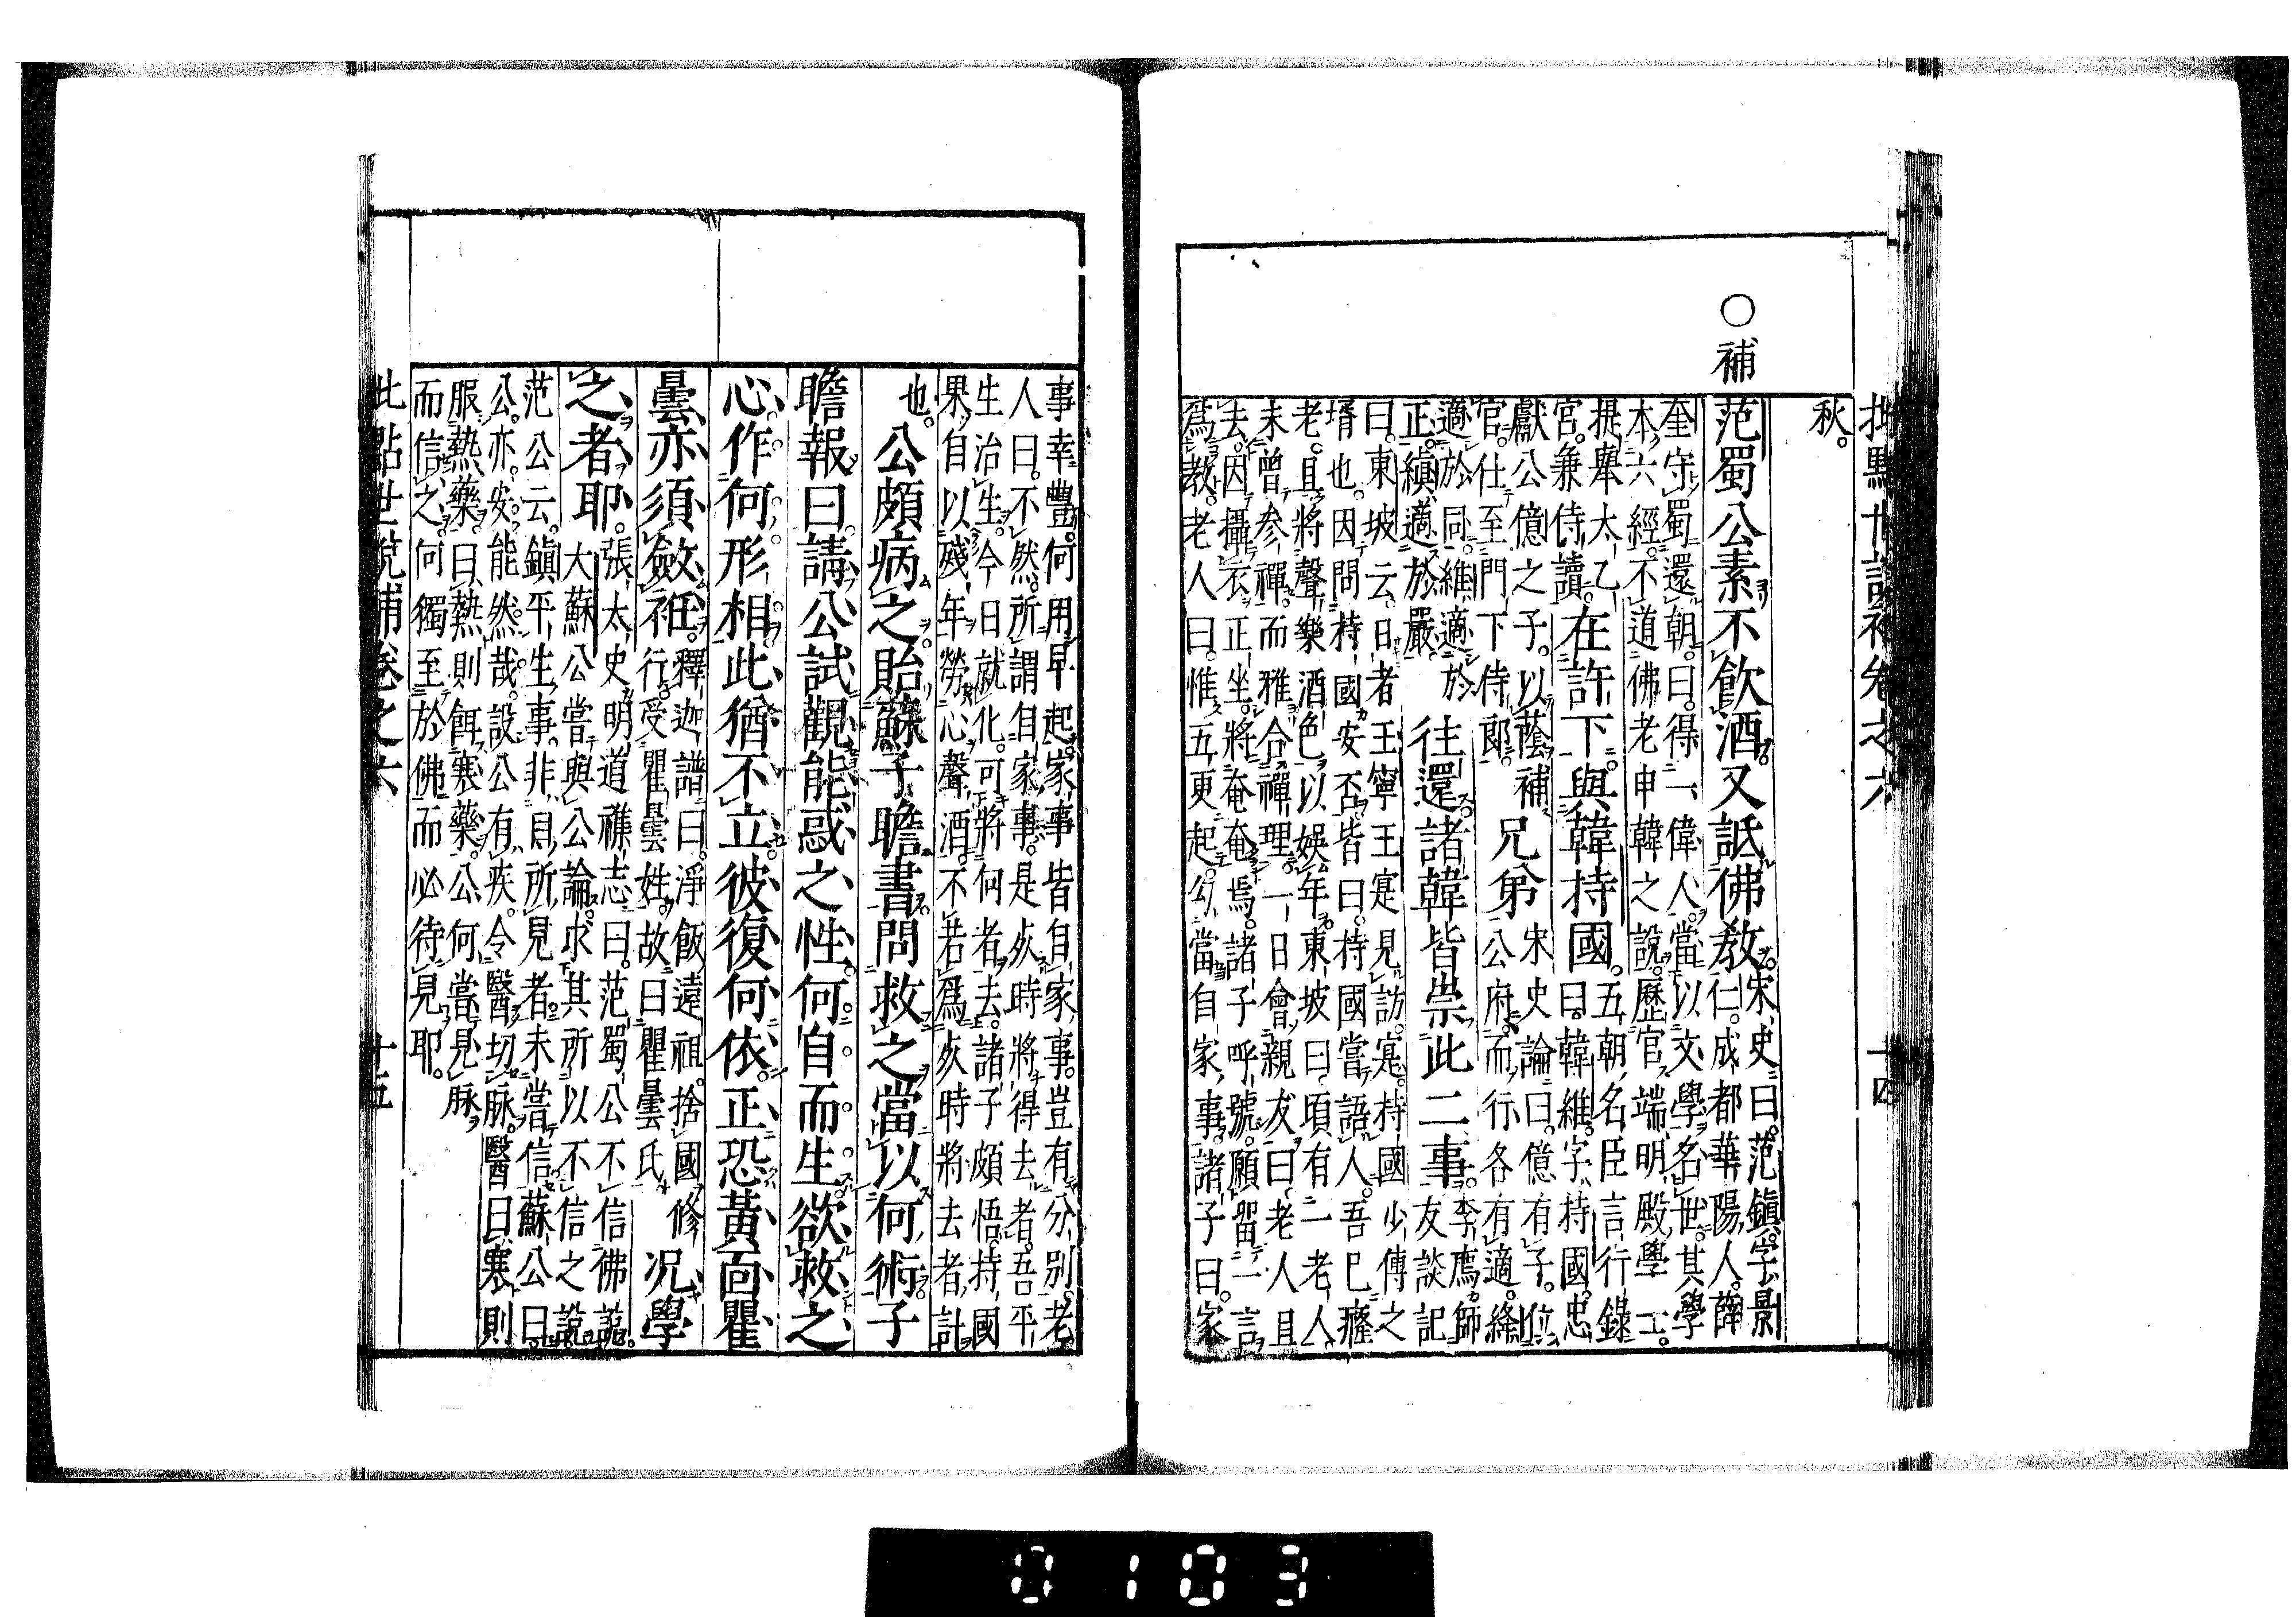 批點世說補卷之六 十四
秋。
○補
范蜀公素不飲酒。又詆佛教。宋史曰。范鎮。字景
仁。成都華陽人。薛
奎守蜀還朝。曰。得一偉人。當以文學名世。其學
本六經。不道佛老申韓之說。歷官端明殿學士。
提舉太乙
宮。兼侍讀。在許下。與韓持國。五朝名臣言行錄
曰。韓維。字持國。忠
獻公億之子。以蔭補
官。仕至門下侍郎。兄弟宋史論曰。億有子。位
公府。而行各有適。絳
適於同。維適於
正。縝適於嚴。往還。諸韓皆崇此二事。李廌師
友談記
曰。東坡云。日者王寧王寔見訪。寔。持國少傳之
壻也。因問持國安否。皆曰。持國嘗語人。吾已癃
老。且將聲樂酒色以娛年。東坡曰。頃有二老人
未曾參禪。而雅合禪理。一日會親友曰。老人且
去。因攝衣正坐。將奄奄焉。諸子呼號。願留一言
爲教。老人曰。惟五更起。公當自家事。諸子曰。家
事幸豐。何用早起。家事皆自家事。豈有分別。老
人曰。不然。所謂自家事。是死時將得去者。吾平
生治生。今日就化。可將何者去。諸子頗悟。持國
果自以殘年勞心聲酒。不若爲死時將去者計
也。公頗病之。貽蘇子瞻書。問救之當以何術。子
瞻報曰。請公試觀能惑之性。何自而生。欲救之
心。作何形相。此猶不立。彼復何依。正恐黃面瞿
曇。亦須斂衽。釋迦譜曰。淨飯遠祖。捨國修
行。受瞿曇姓。故曰瞿曇氏。况學
之者耶。張太史明道襍志曰。范蜀公不信佛說。
大蘇公嘗與公論。求其所以不信之說。
范公云。鎮平生事。非目所見者。未嘗信。蘇公曰。
公亦安能然哉。設公有疾。令醫切脉。醫曰。寒則
服熱藥。曰。熱則餌寒藥。公何嘗見脉
而信之。何獨至於佛而必待見耶。
批點世說補卷之六 十五
0103